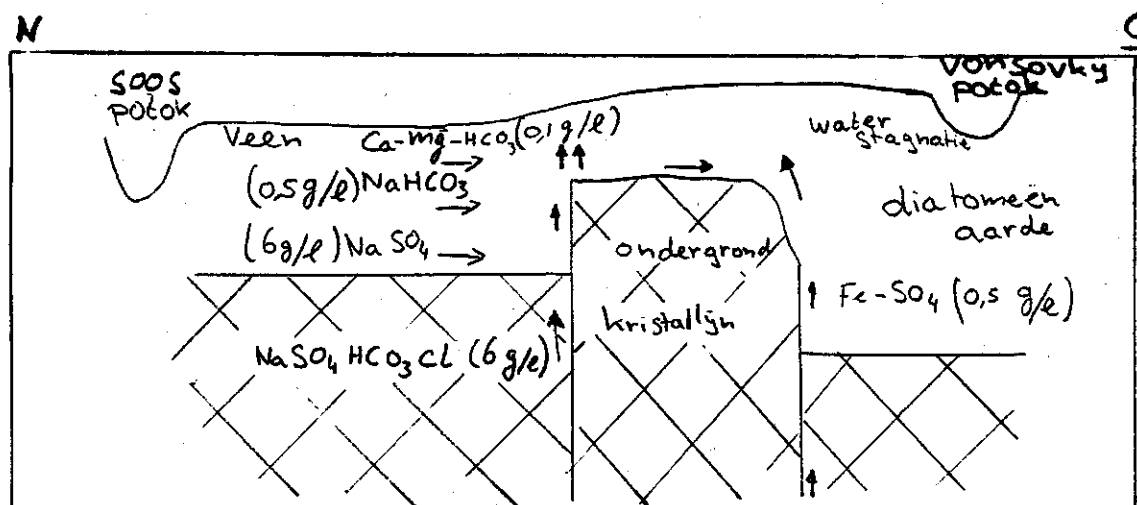 N
O
SOOS
potok
Vonsovky
potok
Veen
Ca-mg-HCO3 (0,1 g/l)
water
stagnatie
(0,5 g/l) NaHCO3
diatomeën
aarde
(6 g/l) Na SO4
ondergrond
Fe-SO4 (0,5 g/l)
kristallijn
NaSO4 HCO3 Cl (6 g/l)